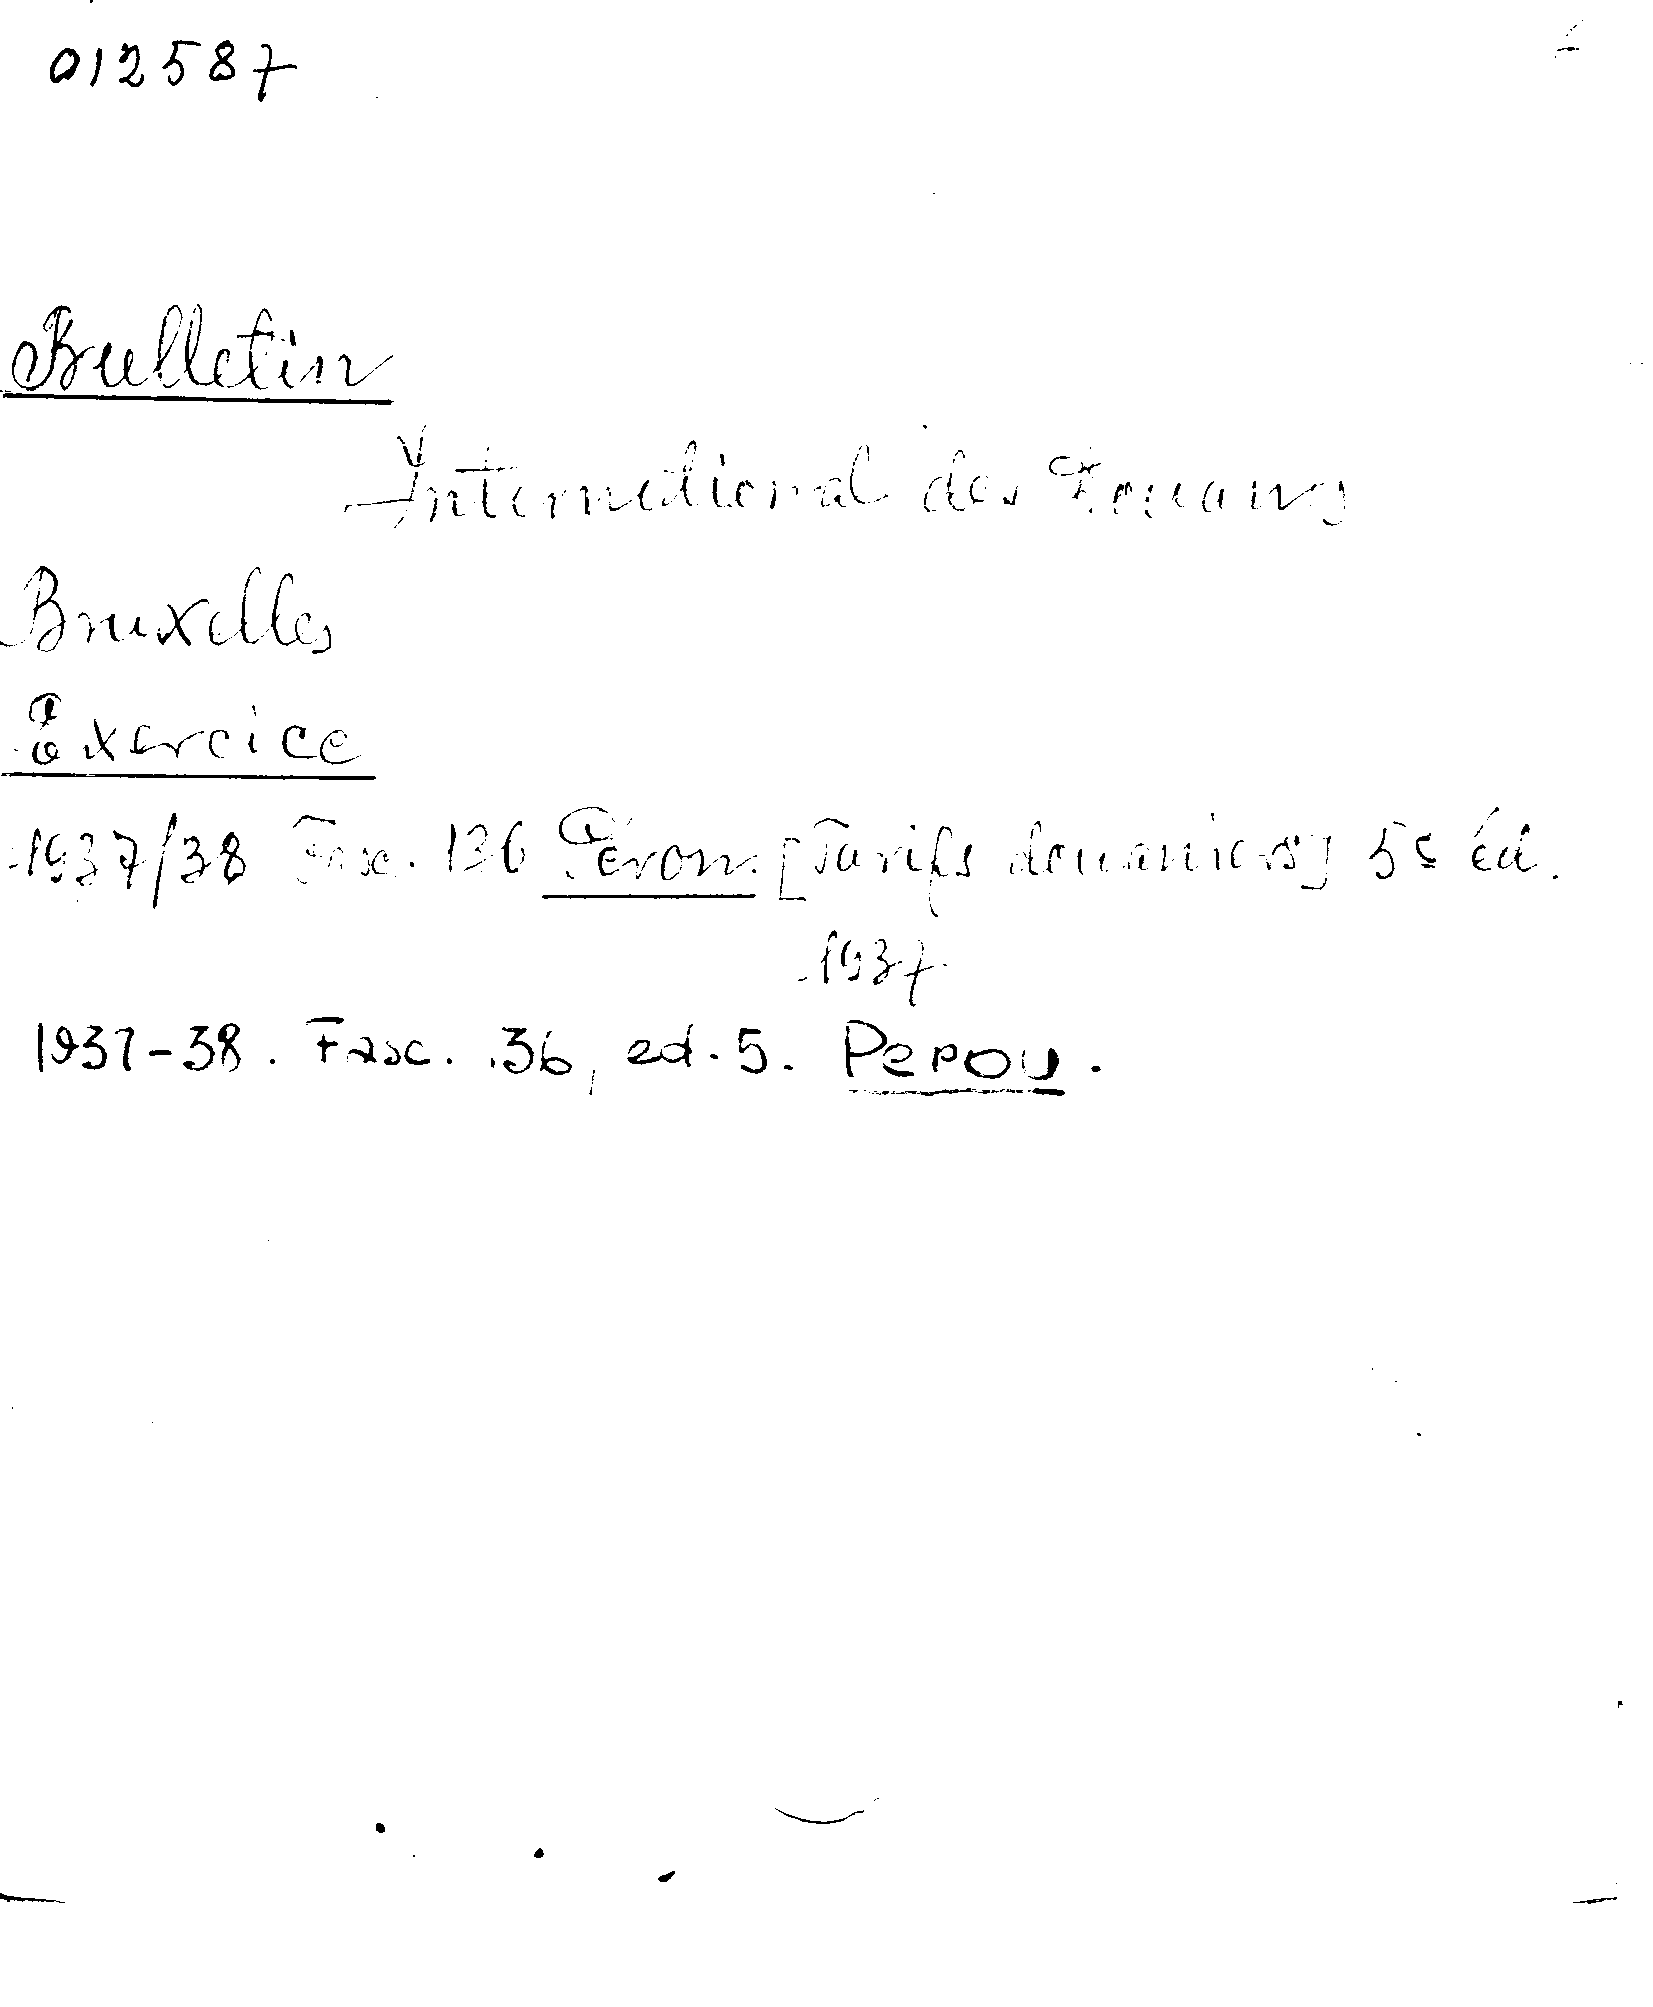 012587
Bulletin
International des Douanes
Bruxelles
Exercice
1937/38 Fasc. 136 Pérou. [Tarifs douaniers] 5e éd.
1937
1937-38. Fasc. 136, ed. 5. Perou.